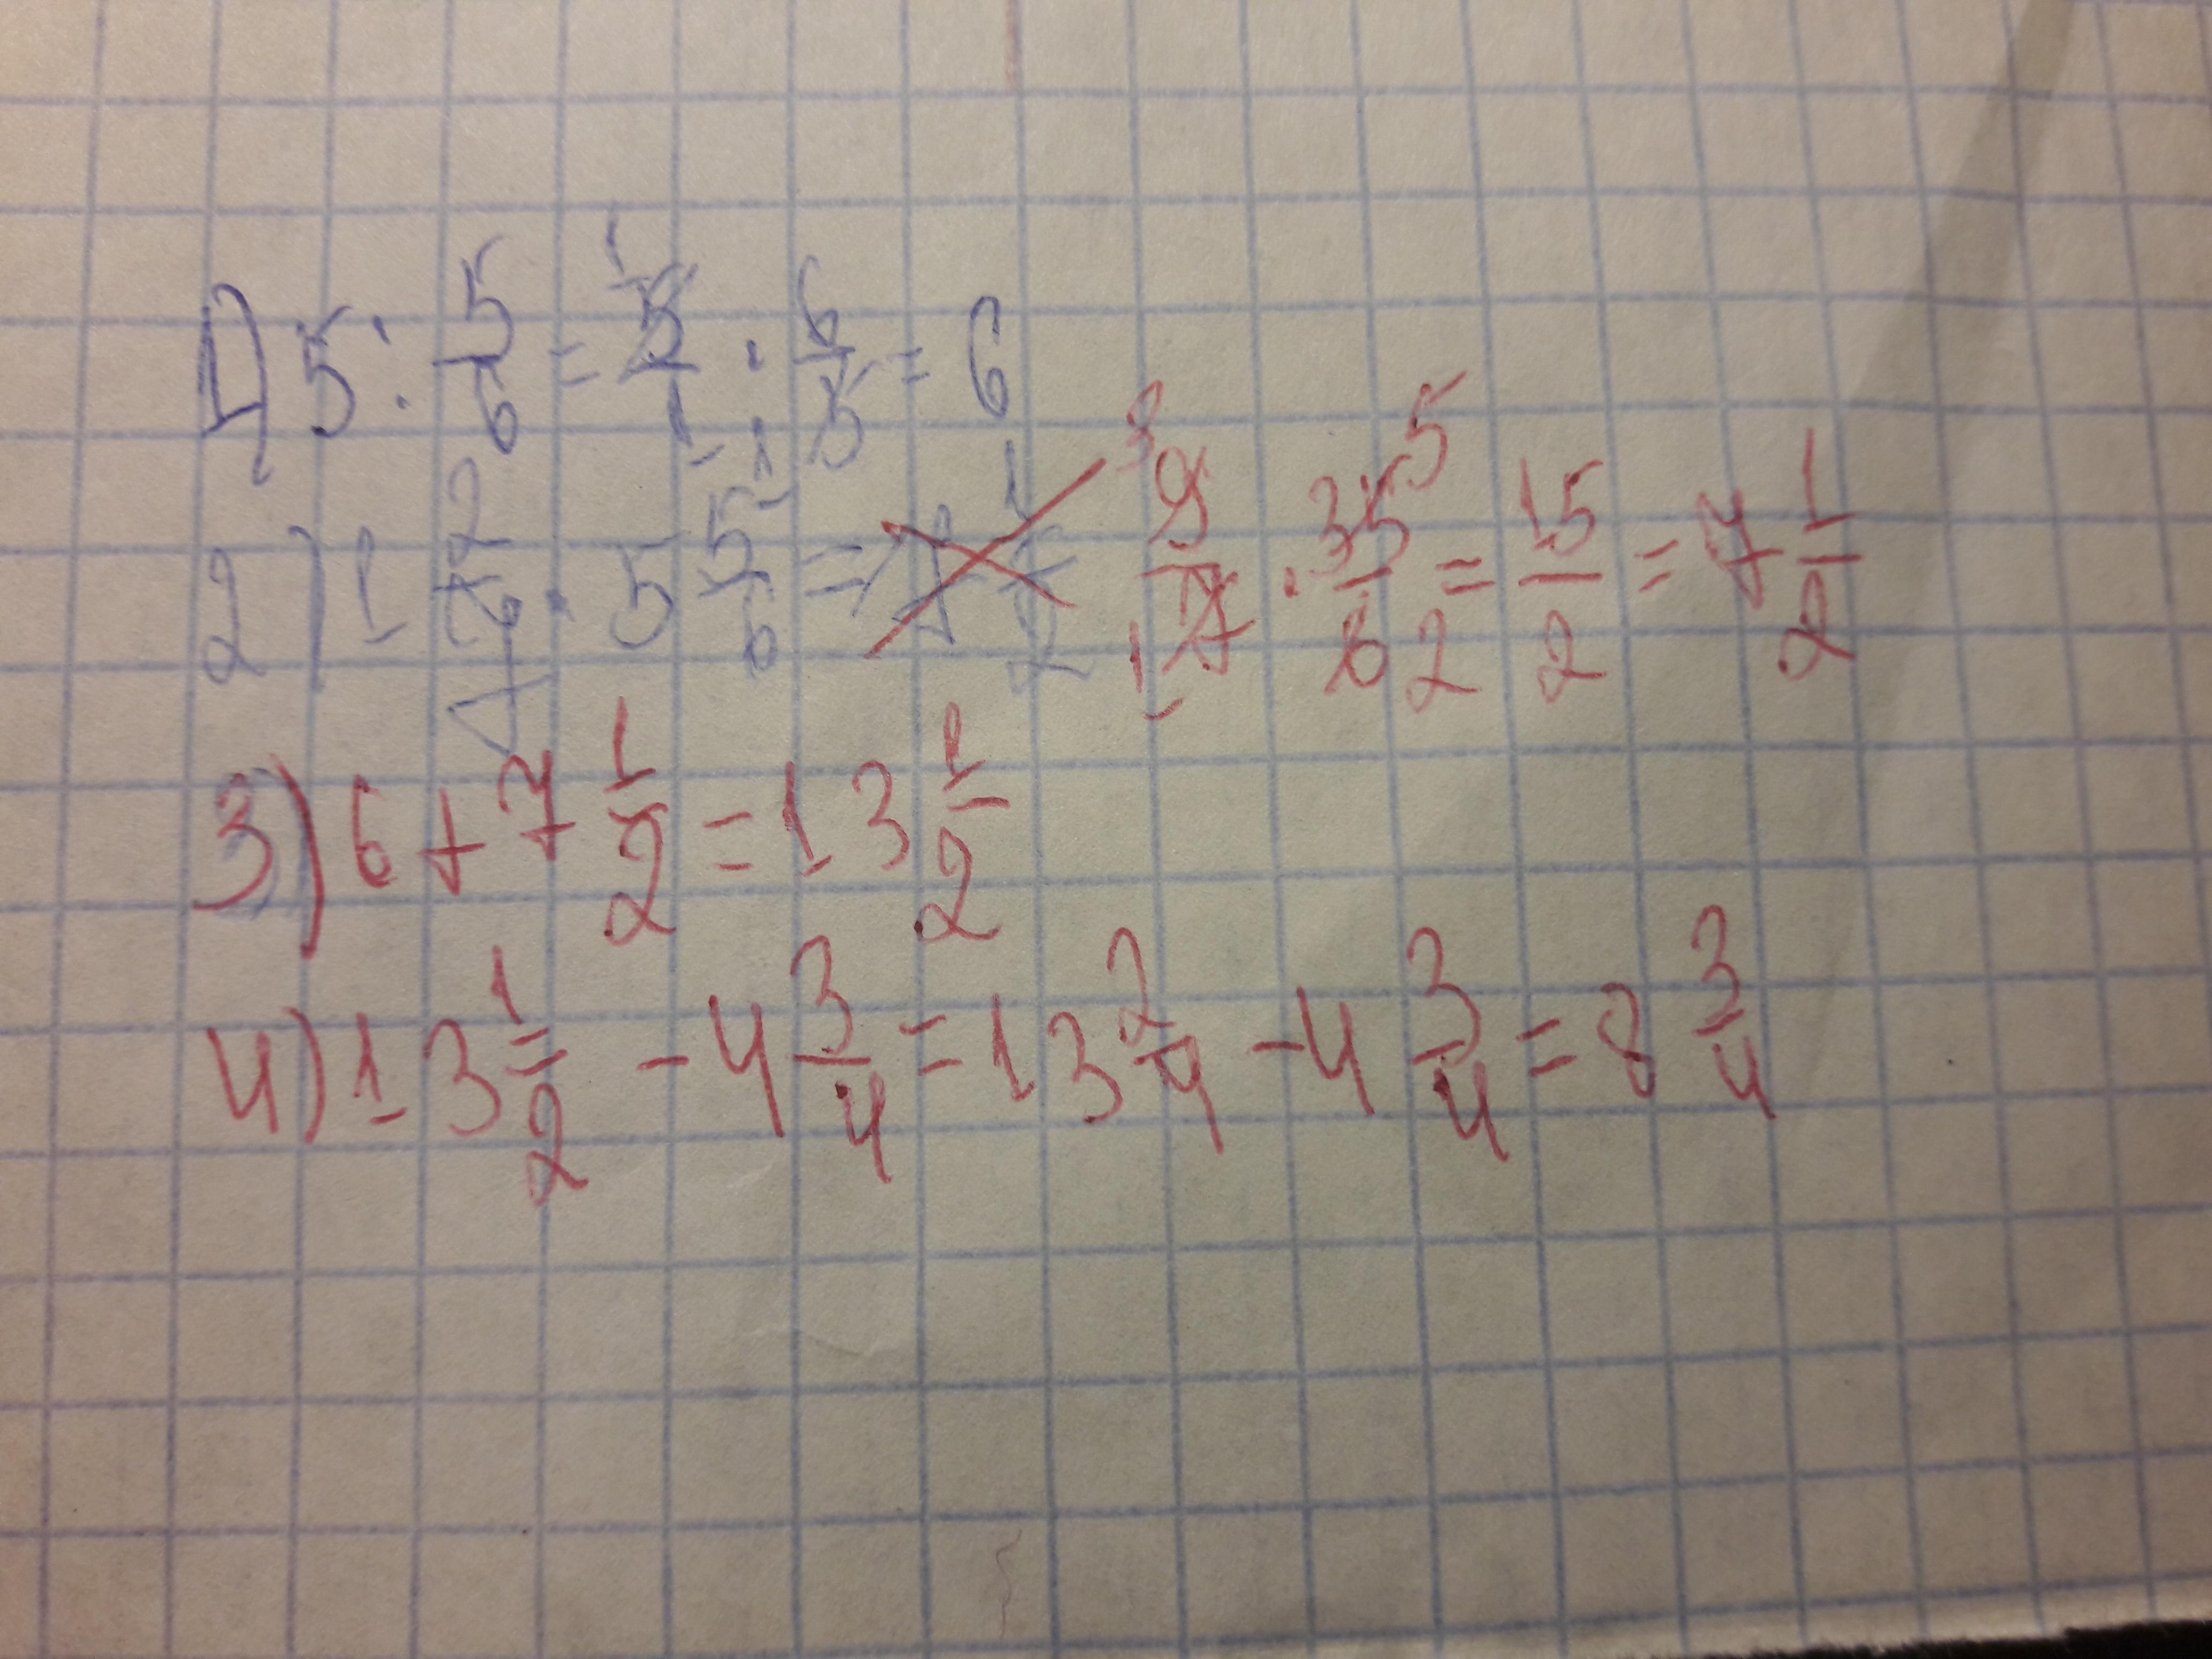 1) 5 : 5/6 = 5/1 · 6/5 = 6
2) 1 2/7 · 5 5/6 = 7 1/2 9/7 · 35/6 = 15/2 = 7 1/2
3) 6 + 7 1/2 = 13 1/2
4) 13 1/2 - 4 3/4 = 13 2/4 - 4 3/4 = 8 3/4